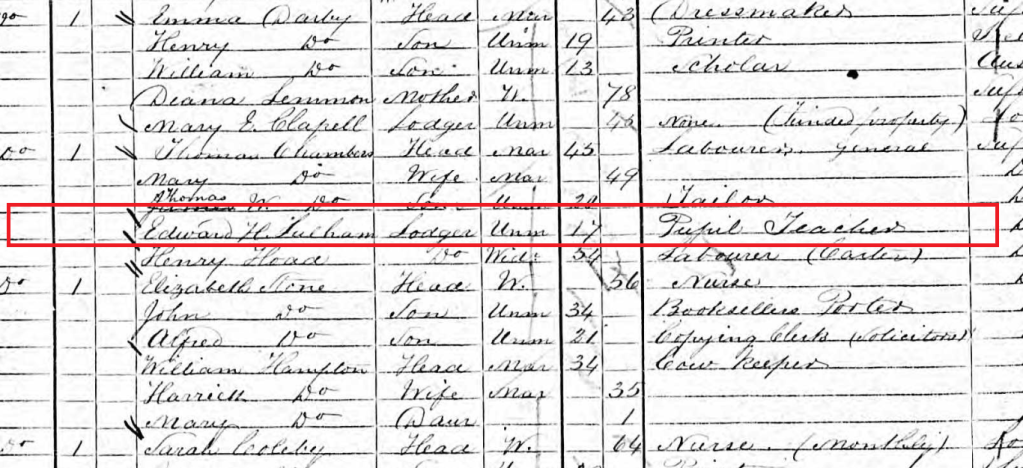 Do 1 Emma Darby Head Mar 43 Dressmaker Suf
Henry Do Son Unm 19 Printer
William Do Son Unm 13 Scholar
Deana Lemmon Mother W. 78 Suf
Mary E. Clapell Lodger Unm 45 None (funded property) Lo
Do 1 Thomas Chambers Head Mar 45 Labourer General Suf
Mary Do Wife Mar 49
Thomas W. Do Son Unm 20 Tailor
Edward H. Fulham Lodger Unm 17 Pupil Teacher
Henry Hoad Do Wid 54 Labourer (Carter)
Do 1 Elizabeth Stone Head W. 56 Nurse
John Do Son Unm 34 Booksellers Porter
Alfred Do Son Unm 21 Copying Clerk (Solicitors)
William Hampton Head Mar 34 Cow Keeper
Harriek Do Wife Mar 35
Mary Do Daur 1
Do 1 Sarah Coleby Head W. 64 Nurse (Monthly) Lo